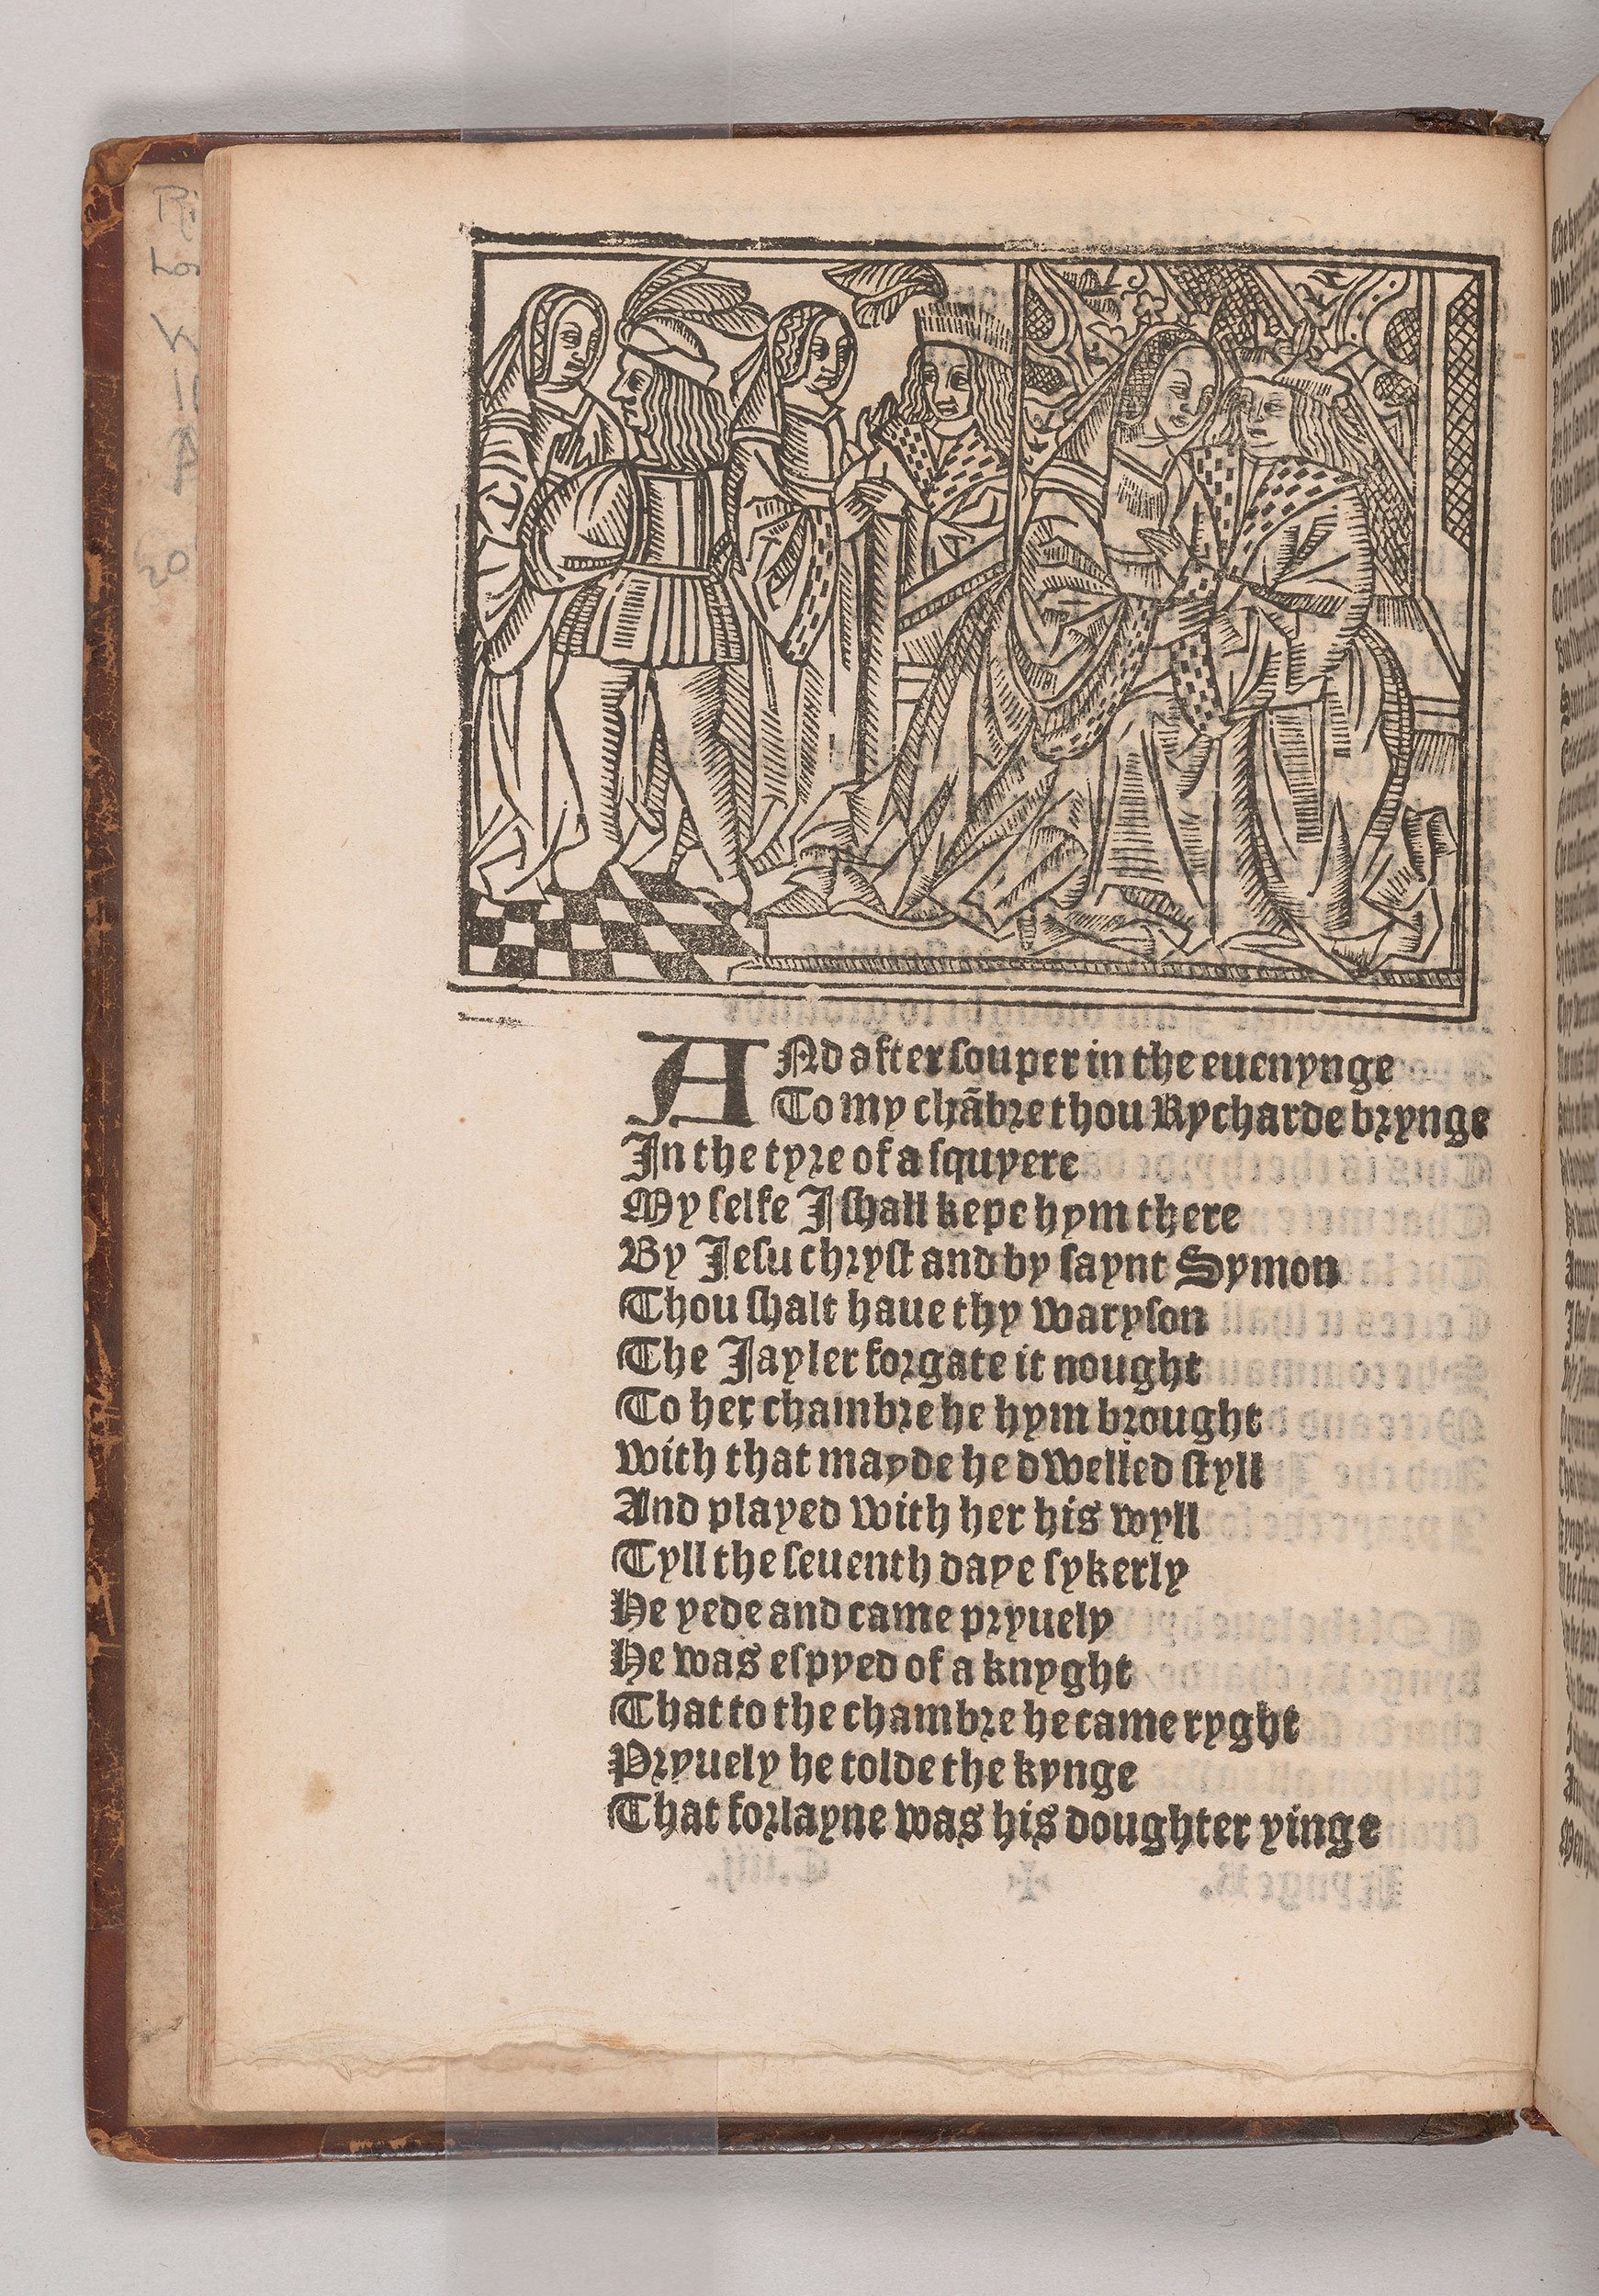 ANd after souper in the euenynge
To my chãbre thou Rycharde brynge
In the tyre of a squyere
My selfe I shall kepe hym there
By Jesu chryst and by saynt Symon
Thou shalt haue thy waryson
The Jayler forgate it nought
To her chambre he hym brought
with that mayde he dwelled styll
And played with her his wyll
Tyll the seuenth daye sykerly
He yede and came pryuely
He was espyed of a knyght
That to the chambre he came ryght
Pryuely he tolde the kynge
That forlayne was his doughter yinge